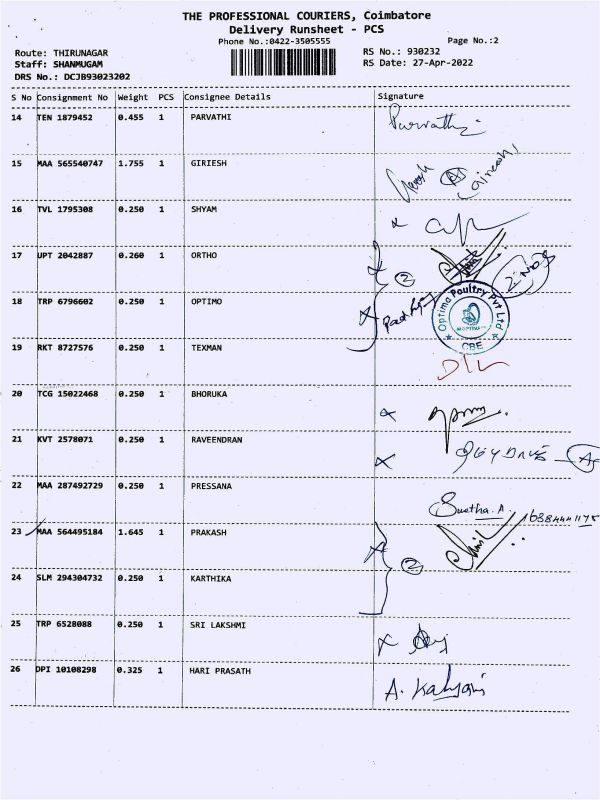 THE PROFESSIONAL COURIERS, Coimbatore
Delivery Runsheet - PCS
Phone No.:0422-3505555
Page No.:2
Route: THIRUNAGAR
RS No.: 930232
Staff: SHANMUGAM
RS Date: 27-Apr-2022
DRS No.: DCJB93023202
S No Consignment No Weight PCS Consignee Details Signature
14 TEN 1879452 0.455 1 PARVATHI Parvathi
15 MAA 565540747 1.755 1 GIRIESH
16 TVL 1795308 0.250 1 SHYAM
17 UPT 2042887 0.260 1 ORTHO 2
2 NOS
18 TRP 6796602 0.250 1 OPTIMO
Optima Poultry Pvt Ltd
CBE
19 RKT 8727576 0.250 1 TEXMAN
20 TCG 15022468 0.250 1 BHORUKA
21 KVT 2578071 0.250 1 RAVEENDRAN
22 MAA 287492729 0.250 1 PRESSANA
23 MAA 564495184 1.645 1 PRAKASH
2
24 SLM 294304732 0.250 1 KARTHIKA
25 TRP 6528088 0.250 1 SRI LAKSHMI
26 DPI 10108298 0.325 1 HARI PRASATH A. Kalyani